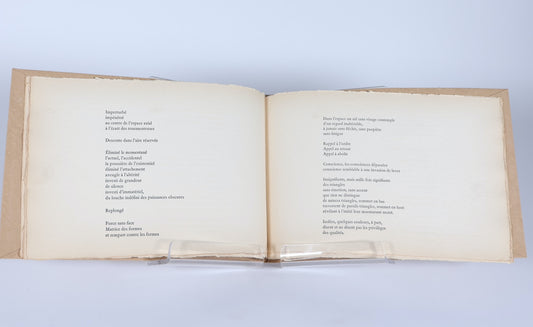 Imperturbé
impénétré
au centre de l'espace axial
à l'écart des tournesoleaux
Descente dans l'aire réservée
Éliminé le momentané
l'actuel, l'accidentel
la poussière de l'existentiel
éliminé l'attachement
aveugle à l'altérité
investi de grandeur
de silence
investi d'immatériel,
du leurre indéfini des puissances obscures
Replongé
Force sans face
Matrice des formes
et rempart contre les formes
Dans l'espace un œil sans visage contemple
d'un regard inaltérable,
à jamais sans fléchir, sans paupière
sans fatigue
Rappel à l'ordre
Appel au retour
Appel à abolir
Conscience, les consciences dépassées
conscience semblable à une invasion de
Insignifiants, mais mille fois signifiants
des triangles
sans émotion, sans accent
que rien ne distingue
de naissants triangles, sommet en bas
traversent de pareils triangles, sommet en haut
révélant à l'initié leur murmurant secret.
Isolées, quelques couleurs, à part,
disent et ne disent pas les privilèges
des qualités.